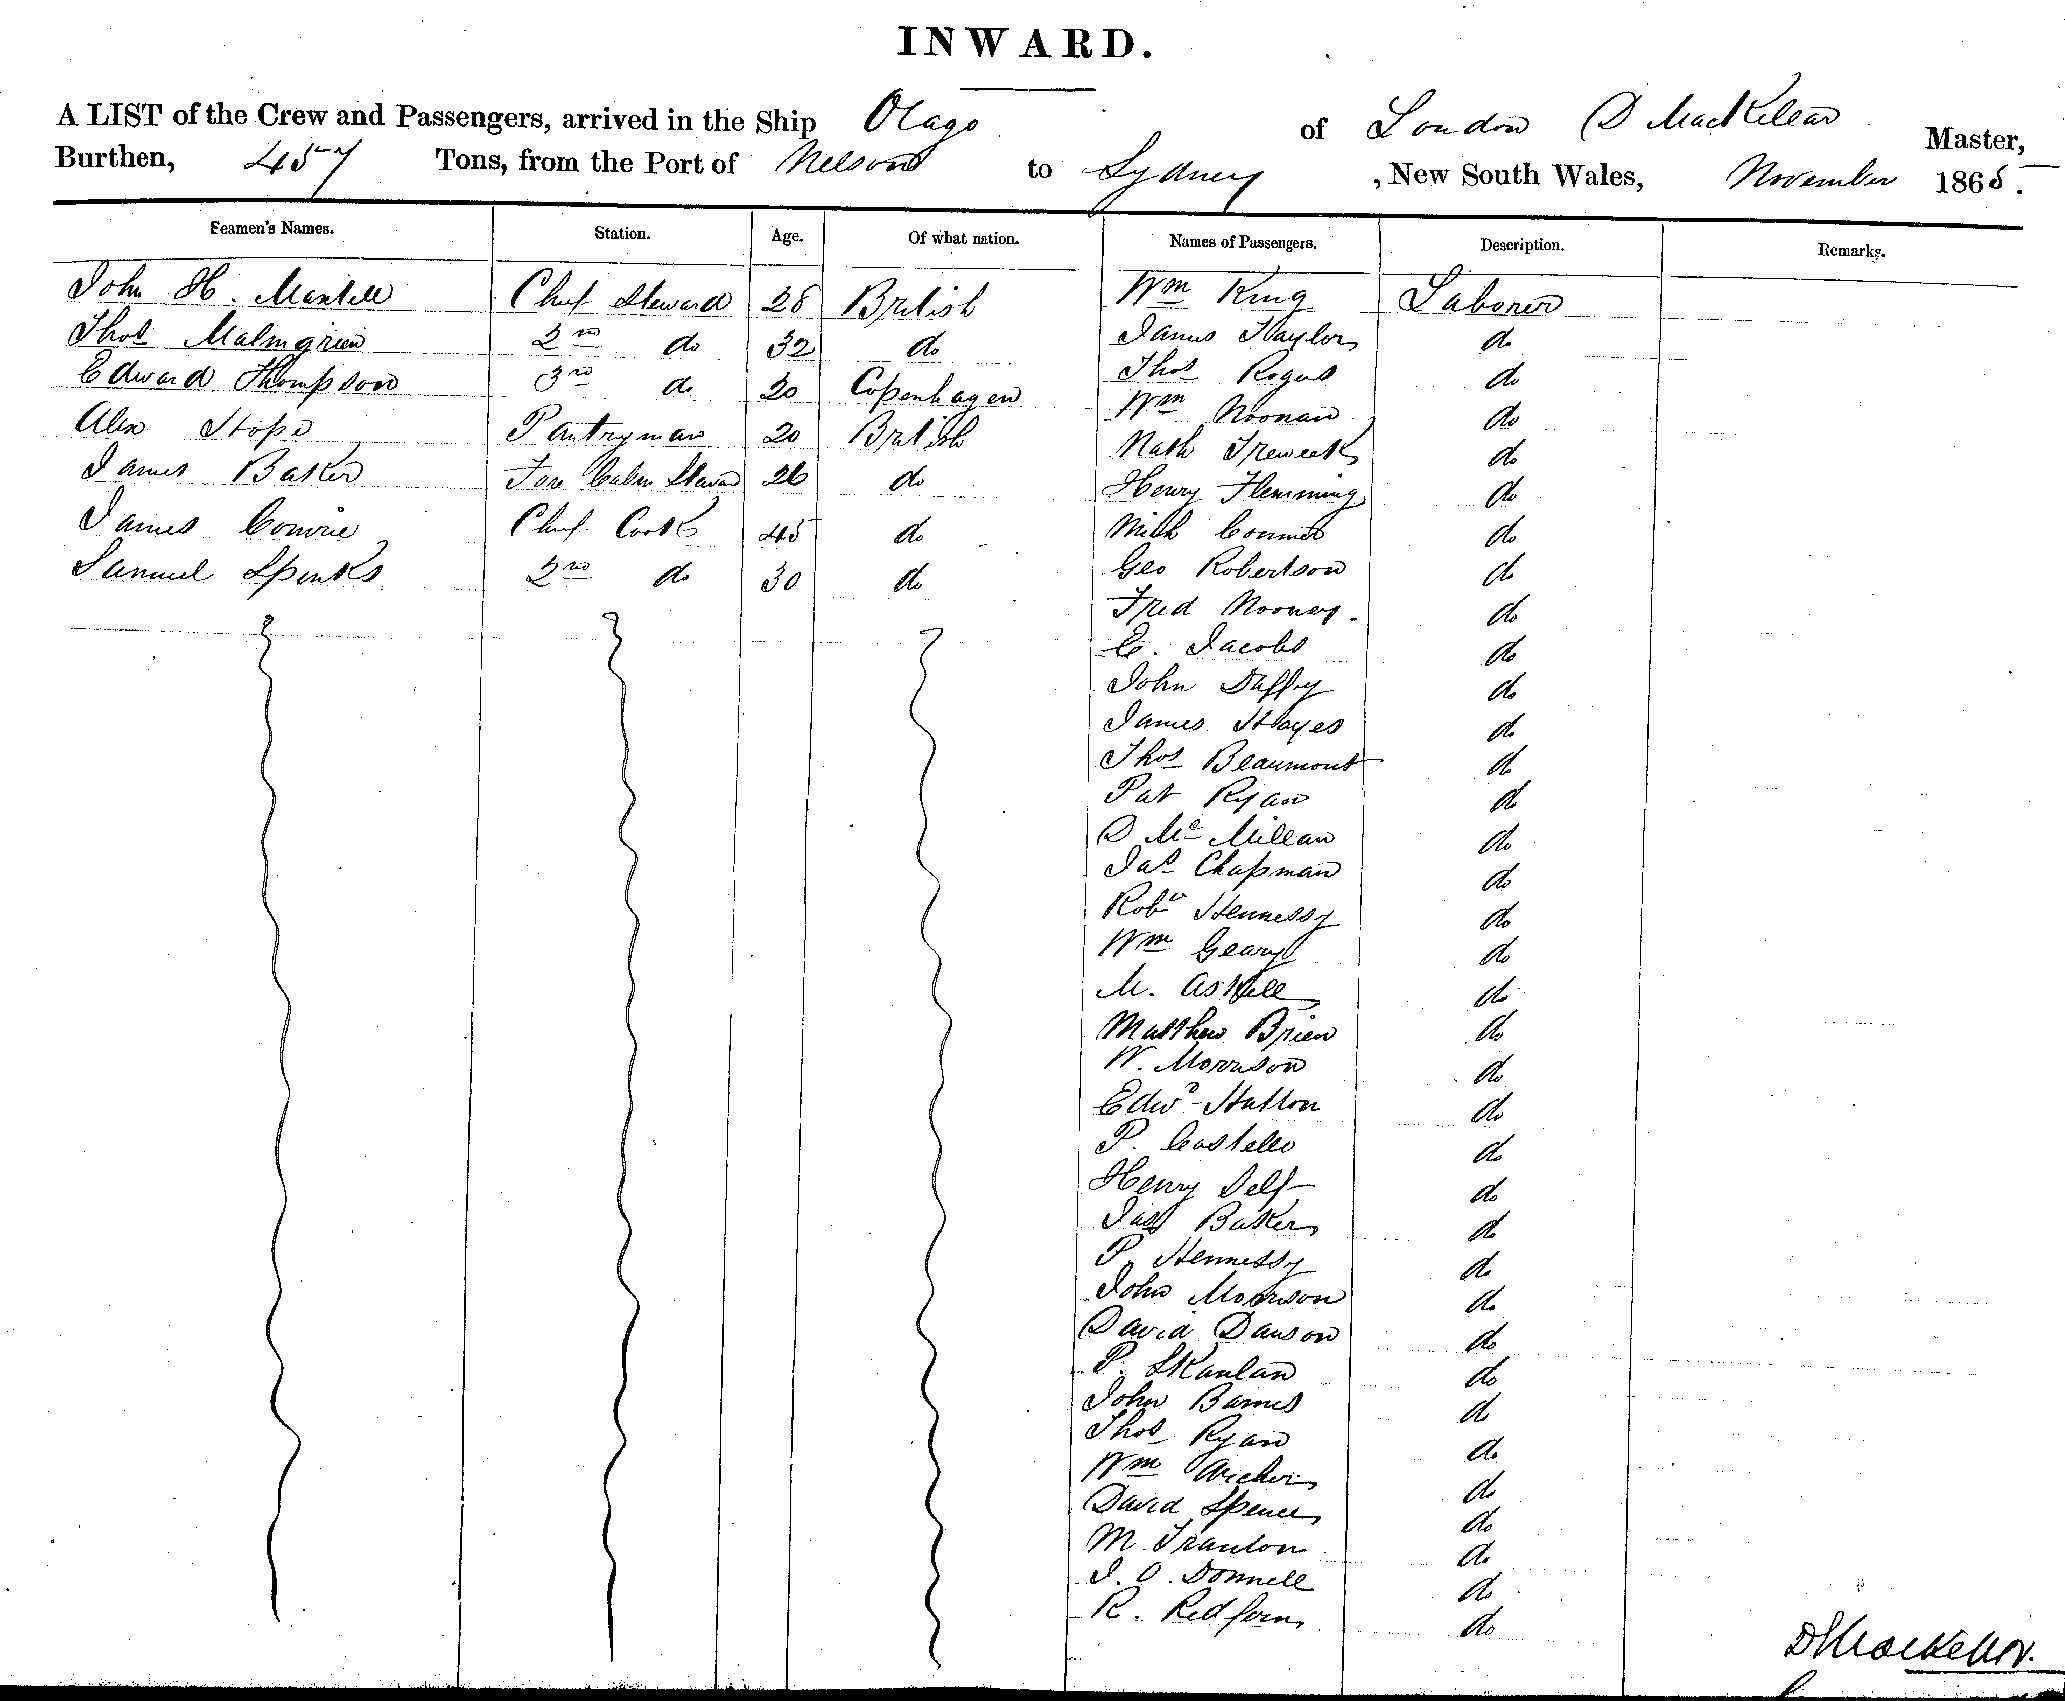 INWARD.
A LIST of the Crew and Passengers, arrived in the Ship Otago of London D MacKelear Master,
Burthen, 457 Tons, from the Port of Nelson to Sydney , New South Wales, November 1865.
Seamen's Names. Station. Age. Of what nation. Names of Passengers. Description. Remarks.
John H. Mantell Chief Steward 28 British Wm King Laborer
Thos Malmgrien 2nd do 32 do James Taylor do
Edward Thompson 3rd do 20 Copenhagen Thos Rogus do
Alex Hope Pantryman 20 British Wm Noonan do
James Baker Fore Cabin Steward 26 do Nath Treweek do
Henry Flemming do
James Comrie Chief Cook 45 do Mich do
Samuel Spinks 2nd do 30 do Geo Robertson do
Fred Mooney. do
C. Jacobs do
John Duffy do
James Hayes do
Thos Beaumont do
Pat Ryan do
D McMillan do
Jas Chapman do
Robt Hennessy do
Wm Geary do
M. Askell do
Matthew Brien do
W. Morrison do
Edwd Hutton do
P. Costello do
Henry Delf do
Jas Baker do
P. Hennessy do
John Morrison do
David Dawson do
P. Skanlan do
John Barnes do
Thos Ryan do
Wm Archer do
David Spence do
M. do
J. O. Donnell do
R. Redfern do